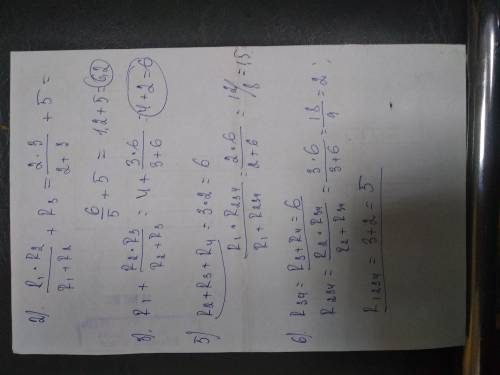 2). R1 · R2 / R1 + R2 + R3 = 2 · 3 / 2 + 3 + 5 =
6/5 + 5 = 1,2 + 5 = 6,2
3). R1 + R2 · R3 / R2 + R3 = 4 + 3 · 6 / 3 + 6 = 4 + 2 = 6
5) R2 + R3 + R4 = 3 · 2 = 6
R1 · R234 / R1 + R234 = 2 · 6 / 2 + 6 = 12/8 = 1.5
6) R34 = R3 + R4 = 6
R234 = R2 · R34 / R2 + R34 = 3 · 6 / 3 + 6 = 18/9 = 2;
R1234 = 3 + 2 = 5